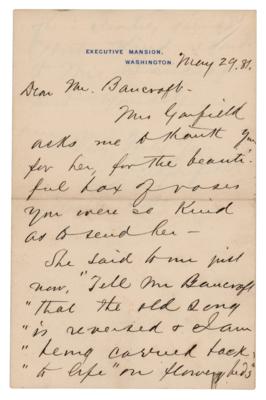 EXECUTIVE MANSION,
WASHINGTON
May 29. 81.
Dear Mr. Bancroft-
Mrs Garfield
asks me to thank you
for her, for the beauti-
ful box of roses
you were so kind
as to send her—
She said to me just
now, "Tell Mr Bancroft
"that the old song
"is reversed & I am
"being carried back,
"to life "on flowery beds"